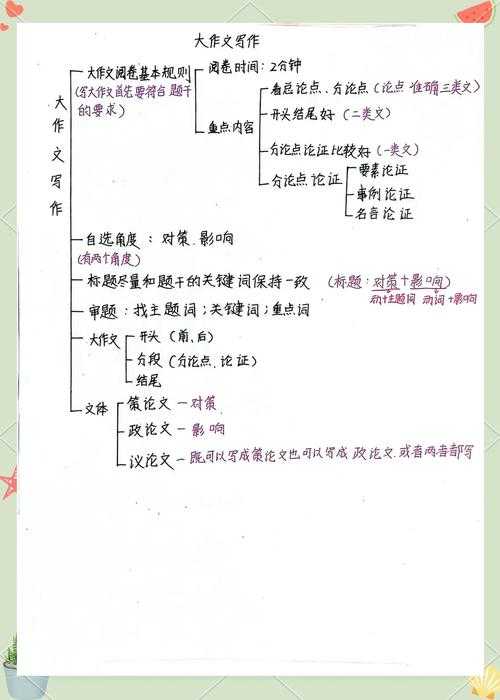 大作文写作
大作文写作
大作文阅卷基本规则
(写大作文首先要符合题干的要求)
阅卷时间：2分钟
重点内容
看总论点、分论点（论点准确三类文）
开头结尾好（二类文）
分论点论证比较好（一类文）
分论点论证
要素论证
事例论证
名言论证
自选角度：对策、影响
(有两个角度)
标题尽量和题干的关键词保持一致 （标题：对策+影响）
动+主题词 动词+影响
审题：找主题词；关键词；重点词
大作文
开头（前、后）
分段（分论点、论证）
结尾
文体
策论文－对策
政论文－影响
议论文－既可以写成策论文也可以写成政论文.或者两者都写